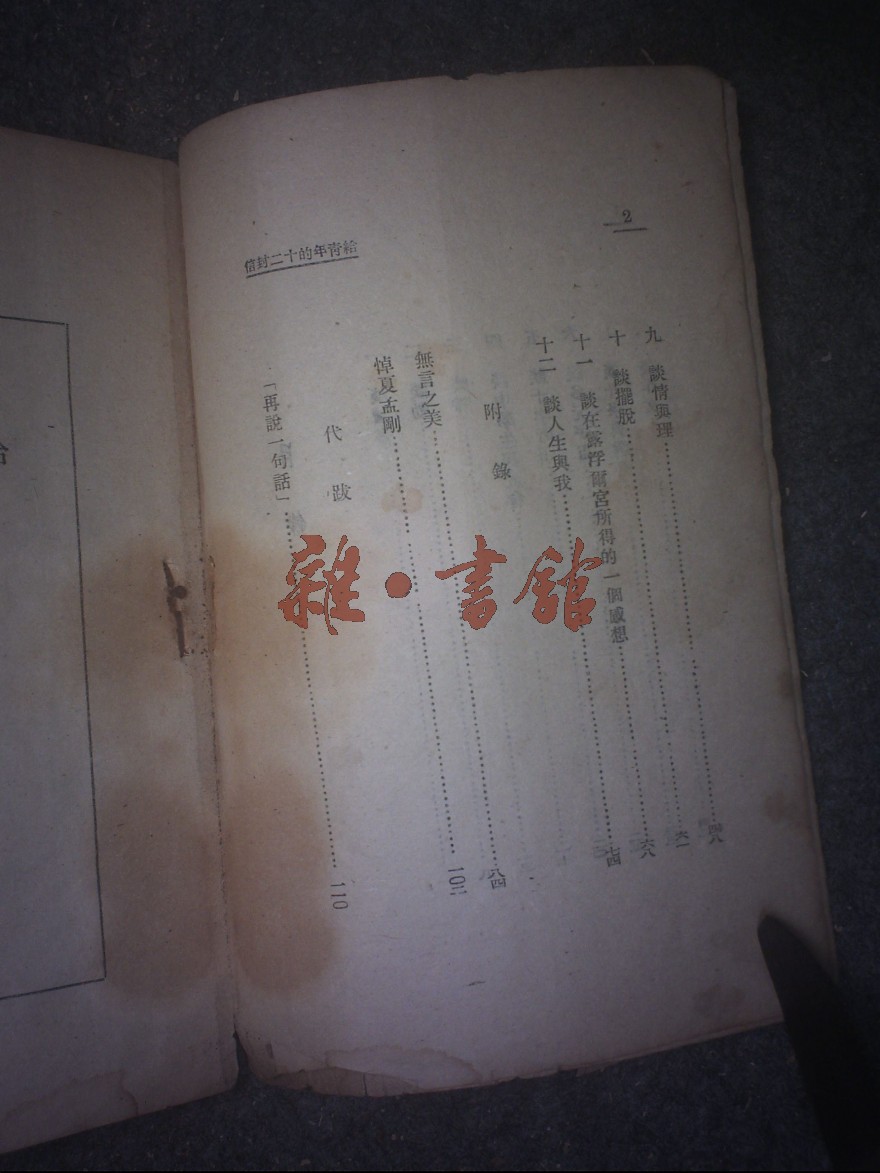 2
給青年的十二封信
九 談情與理……四八
十 談擺脫……六一
十一 談在露浮爾宮所得的一個感想……六八
十二 談人生與我……七四
附錄
無言之美……八四
悼夏孟剛……一〇二
代跋
「再說一句話」……一一〇
雜・書館